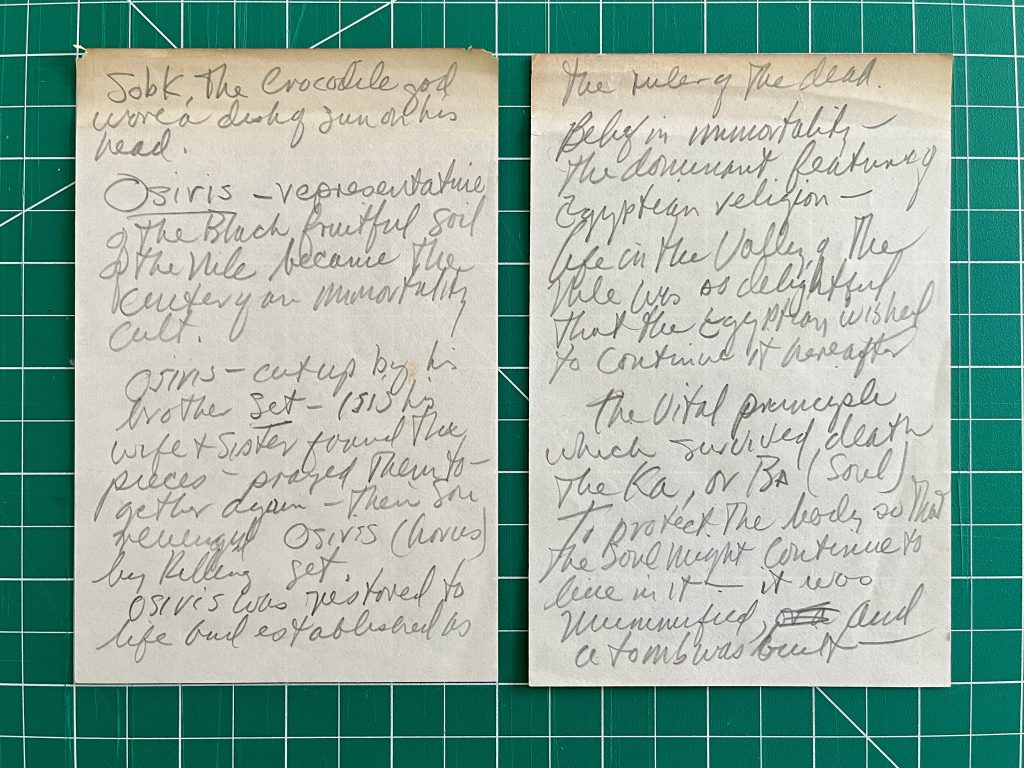 Sobk, The Crocodile god
wore a disk of sun on his
head.
Osiris – representative
of The Black fruitful soil
of the Nile became The
center of an immortality
cult.
Osiris – cut up by his
brother Set – Isis his
wife + Sister found The
pieces – prayed Them to-
gether again – Then Son
revenged Osiris (horus)
by Killing Set.
Osiris was restored to
life and established as
the ruler of The dead.
Belief in immortality –
The dominant feature of
Egyptian religion –
life in the Valley of The
Nile was so delightful
That the Egyptian wished
to continue it hereafter
The Vital principle
which survived death
The Ka, or Ba (Soul)
To protect The body so That
the Soul Might Continue to
live in it – it was
Mummified, and
a tomb was built –